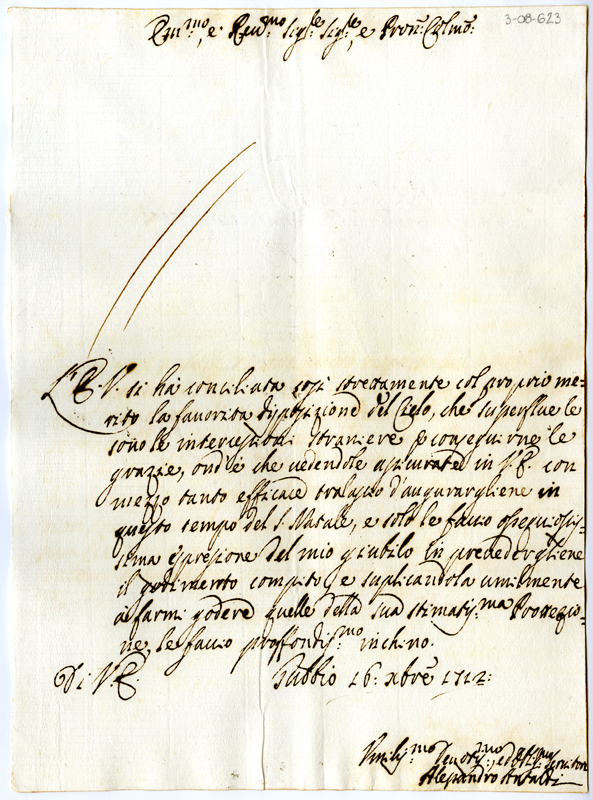 3-08-623
Em.mo, e Reu.mo Sig.re Sig.re, e Pron: Colmo:
L'E. V. si hà conciliata così strettamente col proprio me-
rito la favorita disposizione del Cielo, che superflue le
sono le intercessioni straniere p conseguirne le
grazie, ond'è che uedendole assicurate in V. E. con
mezzo tanto efficace tralascio d'augurargliene in
questo tempo del S. Natale, e solo le faccio ossequiosis-
sima espresione del mio giubilo in prevedergliene
il godimento compito, e suplicandola umilmente
a farmi godere quelle della sua stimatis.ma Protezio-
ne, le faccio profondis.mo inchino.
Di V. E. Gubbio 16: Xbre 1712:
Umilis.mo Deuotis.mo, ed Servitore
Alessandro